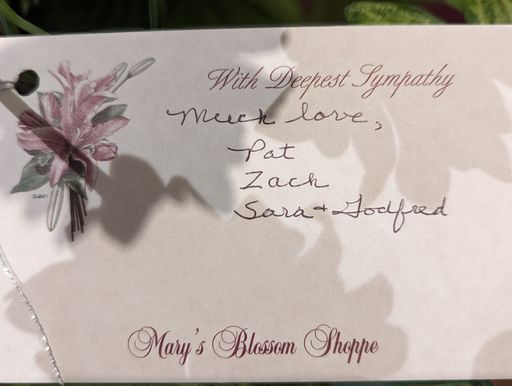 With Deepest Sympathy
Much love,
Pat
Zach
Sara + Godfred
Mary's Blossom Shoppe